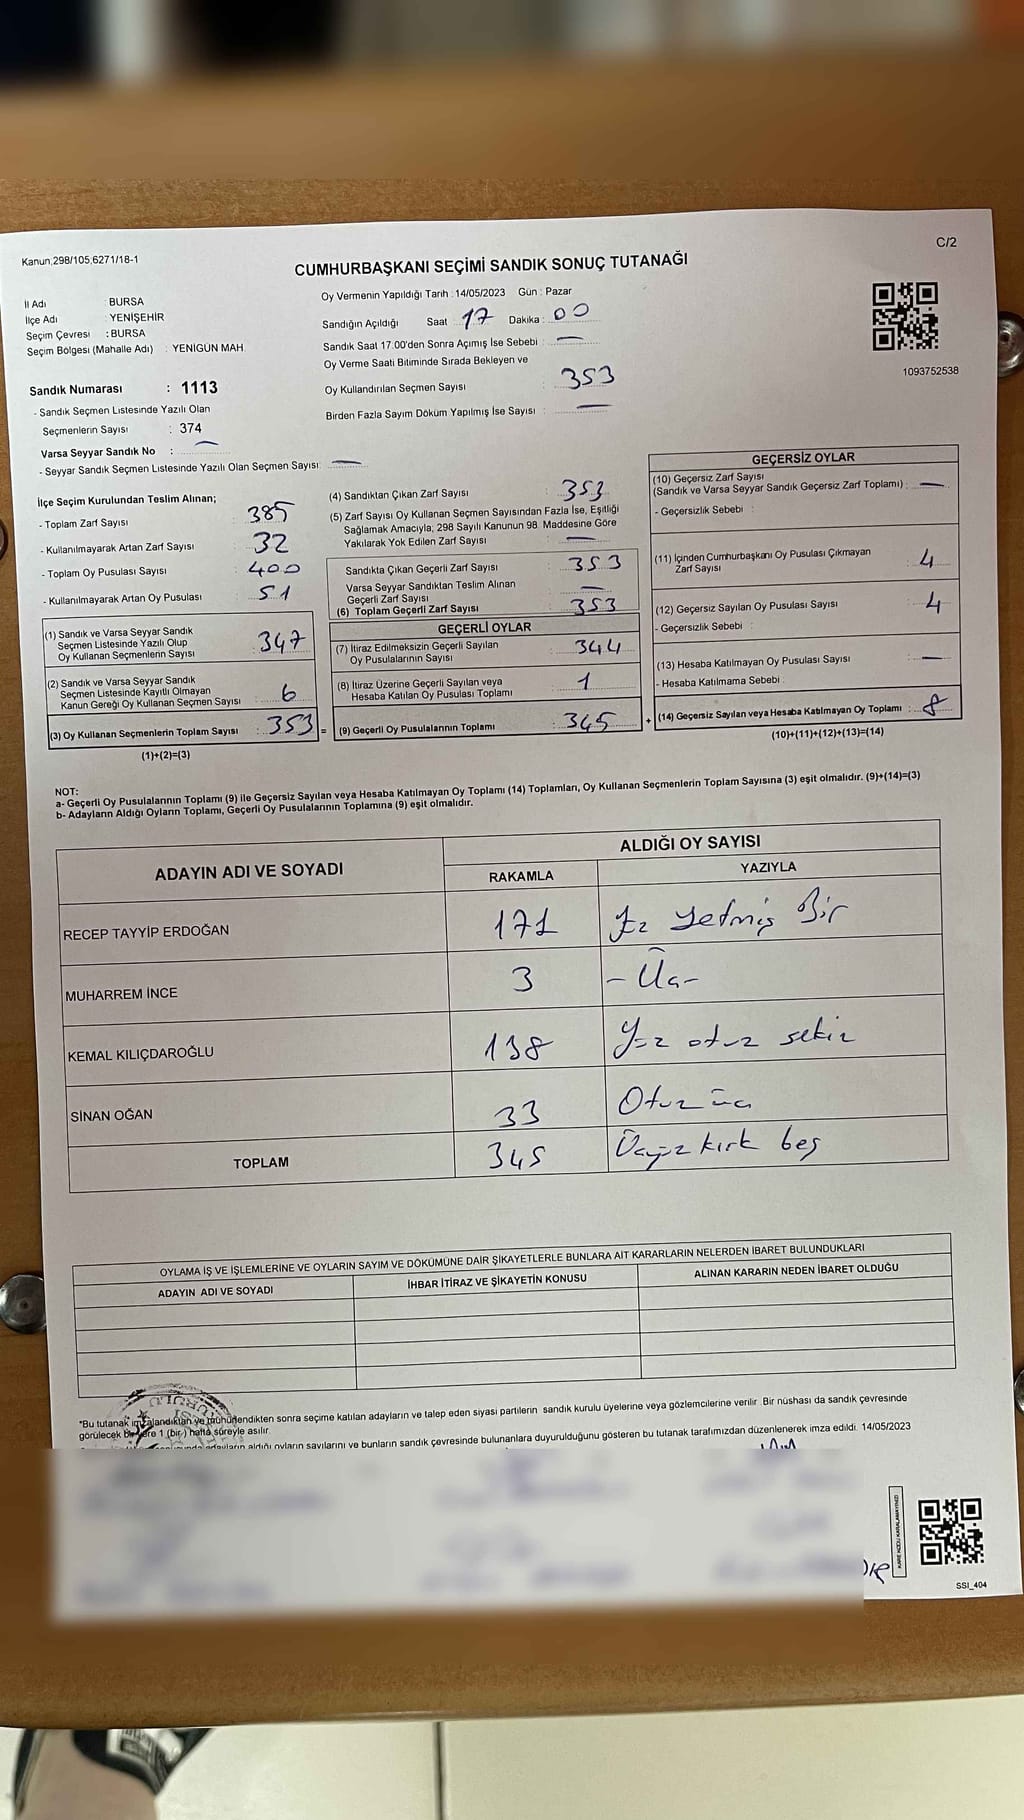 Kanun,298/105,6271/18-1
C/2
CUMHURBAŞKANI SEÇİMİ SANDIK SONUÇ TUTANAĞI
İl Adı : BURSA
İlçe Adı : YENİŞEHİR
Seçim Çevresi : BURSA
Seçim Bölgesi (Mahalle Adı) : YENİGÜN MAH.
Sandık Numarası : 1113
- Sandık Seçmen Listesinde Yazılı Olan
Seçmenlerin Sayısı : 374
Varsa Seyyar Sandık No : —
- Seyyar Sandık Seçmen Listesinde Yazılı Olan Seçmen Sayısı: —
Oy Vermenin Yapıldığı Tarih : 14/05/2023 Gün : Pazar
Sandığın Açıldığı Saat : 17 Dakika : 00
Sandık Saat 17.00'den Sonra Açımış İse Sebebi : —
Oy Verme Saati Bitiminde Sırada Bekleyen ve
Oy Kullandırılan Seçmen Sayısı : 353
Birden Fazla Sayım Döküm Yapılmış İse Sayısı : —
1093752538
İlçe Seçim Kurulundan Teslim Alınan;
- Toplam Zarf Sayısı : 385
- Kullanılmayarak Artan Zarf Sayısı : 32
- Toplam Oy Pusulası Sayısı : 400
- Kullanılmayarak Artan Oy Pusulası : 51
(1) Sandık ve Varsa Seyyar Sandık
Seçmen Listesinde Yazılı Olup
Oy Kullanan Seçmenlerin Sayısı : 347
(2) Sandık ve Varsa Seyyar Sandık
Seçmen Listesinde Kayıtlı Olmayan
Kanun Gereği Oy Kullanan Seçmen Sayısı : 6
(3) Oy Kullanan Seçmenlerin Toplam Sayısı : 353 =
(1)+(2)=(3)
(4) Sandıktan Çıkan Zarf Sayısı : 353
(5) Zarf Sayısı Oy Kullanan Seçmen Sayısından Fazla İse, Eşitliği
Sağlamak Amacıyla; 298 Sayılı Kanunun 98. Maddesine Göre
Yakılarak Yok Edilen Zarf Sayısı : —
Sandıkta Çıkan Geçerli Zarf Sayısı : 353
Varsa Seyyar Sandıktan Teslim Alınan
Geçerli Zarf Sayısı : —
(6) Toplam Geçerli Zarf Sayısı : 353
GEÇERLİ OYLAR
(7) İtiraz Edilmeksizin Geçerli Sayılan
Oy Pusulalarının Sayısı : 344
(8) İtiraz Üzerine Geçerli Sayılan veya
Hesaba Katılan Oy Pusulası Toplamı : 1
(9) Geçerli Oy Pusulalarının Toplamı : 345 +
GEÇERSİZ OYLAR
(10) Geçersiz Zarf Sayısı
(Sandık ve Varsa Seyyar Sandık Geçersiz Zarf Toplamı) : —
- Geçersizlik Sebebi :
(11) İçinden Cumhurbaşkanı Oy Pusulası Çıkmayan
Zarf Sayısı : 4
(12) Geçersiz Sayılan Oy Pusulası Sayısı : 4
- Geçersizlik Sebebi :
(13) Hesaba Katılmayan Oy Pusulası Sayısı : —
- Hesaba Katılmama Sebebi :
(14) Geçersiz Sayılan veya Hesaba Katılmayan Oy Toplamı : 8
(10)+(11)+(12)+(13)=(14)
NOT:
a- Geçerli Oy Pusulalarının Toplamı (9) ile Geçersiz Sayılan veya Hesaba Katılmayan Oy Toplamı (14) Toplamları, Oy Kullanan Seçmenlerin Toplam Sayısına (3) eşit olmalıdır. (9)+(14)=(3)
b- Adayların Aldığı Oyların Toplamı, Geçerli Oy Pusulalarının Toplamına (9) eşit olmalıdır.
ADAYIN ADI VE SOYADI ALDIĞI OY SAYISI
RAKAMLA YAZIYLA
RECEP TAYYİP ERDOĞAN 171 Yüz Yetmiş Bir
MUHARREM İNCE 3 - Üç -
KEMAL KILIÇDAROĞLU 138 Yüz otuz sekiz
SİNAN OĞAN 33 Otuz üç
TOPLAM 345 Üçyüz kırk beş
OYLAMA İŞ VE İŞLEMLERİNE VE OYLARIN SAYIM VE DÖKÜMÜNE DAİR ŞİKAYETLERLE BUNLARA AİT KARARLARIN NELERDEN İBARET BULUNDUKLARI
ADAYIN ADI VE SOYADI İHBAR İTİRAZ VE ŞİKAYETİN KONUSU ALINAN KARARIN NEDEN İBARET OLDUĞU
*Bu tutanak imzalandıktan ve mühürlendikten sonra seçime katılan adayların ve talep eden siyasi partilerin sandık kurulu üyelerine veya gözlemcilerine verilir. Bir nüshası da sandık çevresinde
görülecek bir yere 1 (bir) hafta süreyle asılır.
adayların aldığı oyların sayılarını ve bunların sandık çevresinde bulunanlara duyurulduğunu gösteren bu tutanak tarafımızdan düzenlenerek imza edildi. 14/05/2023
KARE KODU KARALAMAYINIZ!
SSI_404